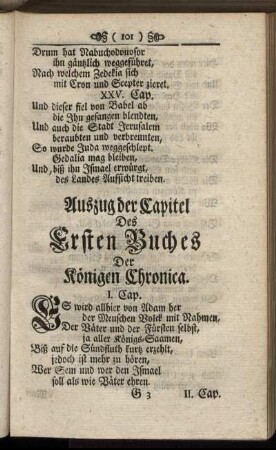 ( 101 )
Drum hat Nabuchodonosor
ihn gäntzlich weggeführet,
Nach welchem Zedekia sich
mit Cron und Scepter zieret.
XXV. Cap.
Und dieser fiel von Babel ab
die Ihn gefangen blendten,
Und auch die Stadt Jerusalem
beraubten und verbrennten,
So wurde Juda weggeschlept.
Gedalia mag bleiben,
Und, biß ihn Ismael erwürgt,
des Landes Auffsicht treiben.
Auszug der Capitel
Des
Ersten Buches
Der
Königen Chronica.
I. Cap.
ES wird allhier von Adam her
der Menschen Volck mit Nahmen,
Der Väter und der Fürsten selbst,
ja aller Königs-Saamen,
Biß auf die Sündfluth kurtz erzehlt,
jedoch ist mehr zu hören,
Wer Sem und wer den Ismael
soll als wie Väter ehren.
G 3 II. Cap.